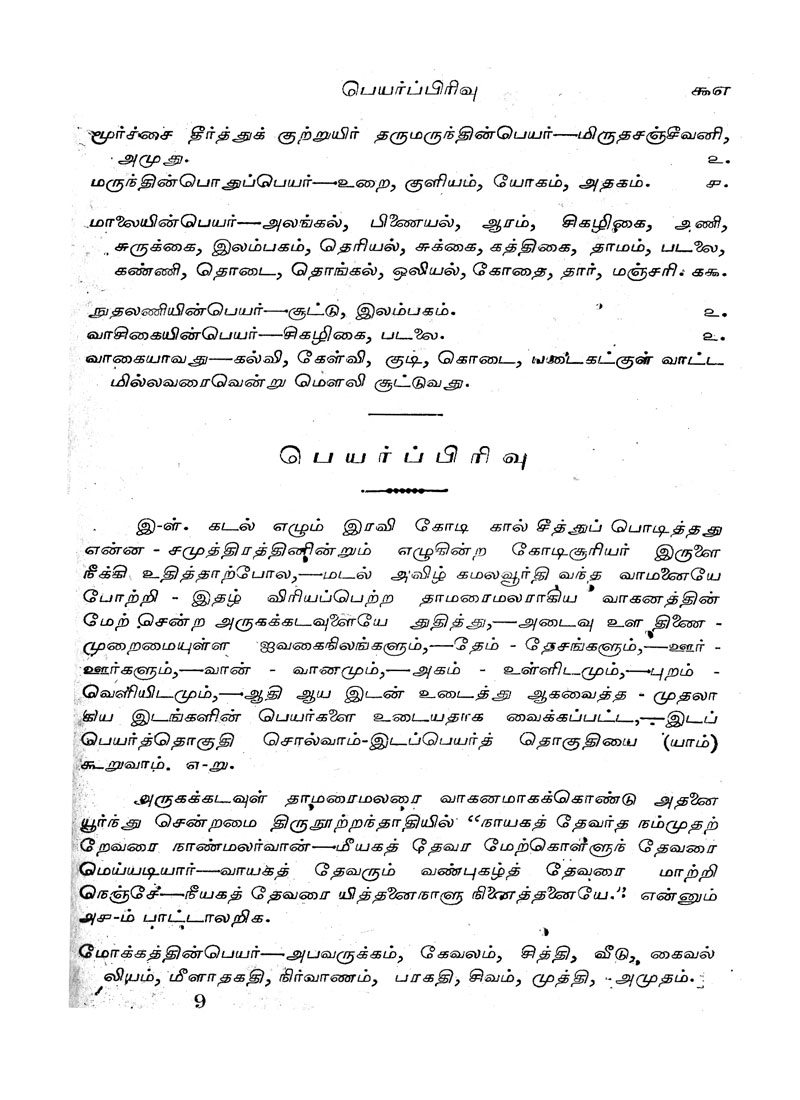 பெயர்ப்பிரிவு ௬௭
மூர்ச்சை தீர்த்துக் குற்றுயிர் தருமருந்தின்பெயர்—மிருதசஞ்சீவனி,
அமுது. ௨.
மருந்தின்பொதுப்பெயர்—உறை, குளியம், யோகம், அதகம். ௪.
மாலையின்பெயர்—அலங்கல், பிணையல், ஆரம், சிகழிகை, அணி,
சுருக்கை, இலம்பகம், தெரியல், சுக்கை, கத்திகை, தாமம், படலை,
கண்ணி, தொடை, தொங்கல், ஒலியல், கோதை, தார், மஞ்சரி. ௧௯.
நுதலணியின்பெயர்—சூட்டு, இலம்பகம். ௨.
வாசிகையின்பெயர்—சிகழிகை, படலை. ௨.
வாகையாவது—கல்வி, கேள்வி, குடி, கொடை, படைகட்குள் வாட்ட
மில்லவரைவென்று மௌலி சூட்டுவது.
பெயர்ப்பிரிவு
இ-ள். கடல் எழும் இரவி கோடி கால் சீத்துப் பொடித்தது
என்ன - சமுத்திரத்தினின்றும் எழுகின்ற கோடிசூரியர் இருளை
நீக்கி உதித்தாற்போல,—மடல் அவிழ் கமலவூர்தி வந்த வாமனையே
போற்றி - இதழ் விரியப்பெற்ற தாமரைமலராகிய வாகனத்தின்
மேற் சென்ற அருகக்கடவுளையே துதித்து,—அடைவு உள திணை -
முறைமையுள்ள ஐவகைநிலங்களும்,—தேம் - தேசங்களும்,—ஊர் -
ஊர்களும்,—வான் - வானமும்,—அகம் - உள்ளிடமும்,—புறம் -
வெளியிடமும்,—ஆதி ஆய இடன் உடைத்து ஆகவைத்த - முதலா
கிய இடங்களின் பெயர்களை உடையதாக வைக்கப்பட்ட,—இடப்
பெயர்த்தொகுதி சொல்வாம்-இடப்பெயர்த் தொகுதியை (யாம்)
கூறுவாம். எ-று.
அருகக்கடவுள் தாமரைமலரை வாகனமாகக்கொண்டு அதனை
யூர்ந்து சென்றமை திருநூற்றந்தாதியில் “நாயகத் தேவர்த நம்முதற்
றேவரை நாண்மலர்வான்—மீயகத் தேவர மேற்கொள்ளுந் தேவரை
மெய்யடியார்—வாயகத் தேவரும் வண்புகழ்த் தேவரை மாற்றி
நெஞ்சே—நீயகத் தேவரை யித்தனைநாளு நினைத்தனையே.” என்னும்
அ௪-ம் பாட்டாலறிக.
மோக்கத்தின்பெயர்—அபவருக்கம், கேவலம், சித்தி, வீடு, கைவல்
லியம், மீளாதகதி, நிர்வாணம், பரகதி, சிவம், முத்தி, அமுதம்.
9